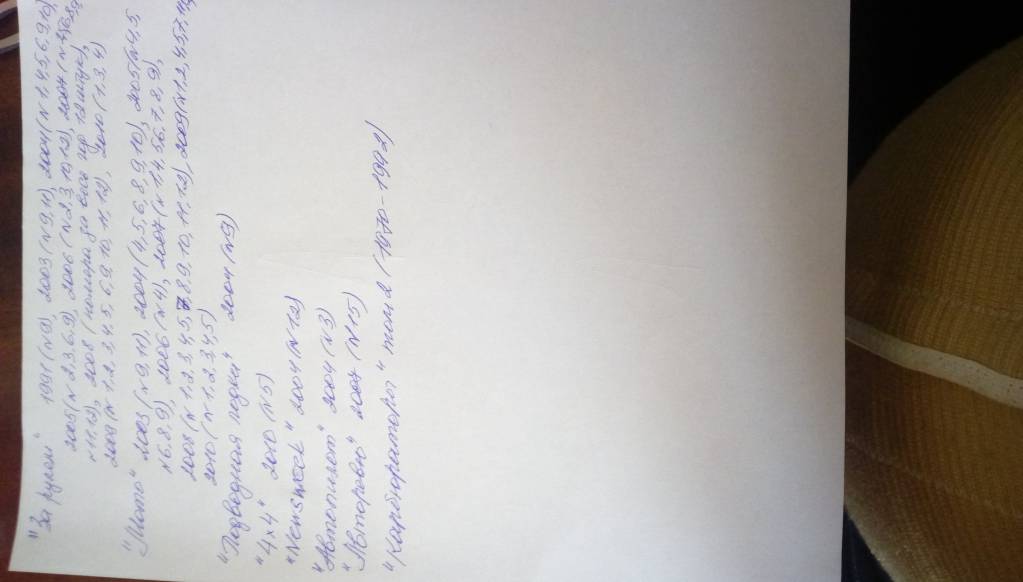 "За рулем" 1991 (№9), 2003 (№9,11), 2004 (№1,4,5,6,9,10,
2005 (№2,3,6,9), 2006 (№2,3,10,12), 2007 (№
№11,12), 2008 (номера за весь год 12 штук),
2009 (№1,2,3,4,5,6,9,10,11,12), 2010 (1,3,4)
"Мото" 2003 (№9,11), 2004 (4,5,6,8,9,10), 2005 (№4,5,
№6,8,9), 2006 (№4), 2007 (№1,4,5,6,7,8,9),
2008 (№1,2,3,4,5,7,8,9,10,11,12), 2009 (№1,2,4,5,7,
2010 (№1,2,3,4,5)
"Подводная лодка" 2004 (№9)
"4x4" 2010 (№5)
"Newsweek" 2004 (№12)
"Автопилот" 2004 (№3)
"Авторевю" 2007 (№15)
"Карбюраторы" том 2 (1970-1992)